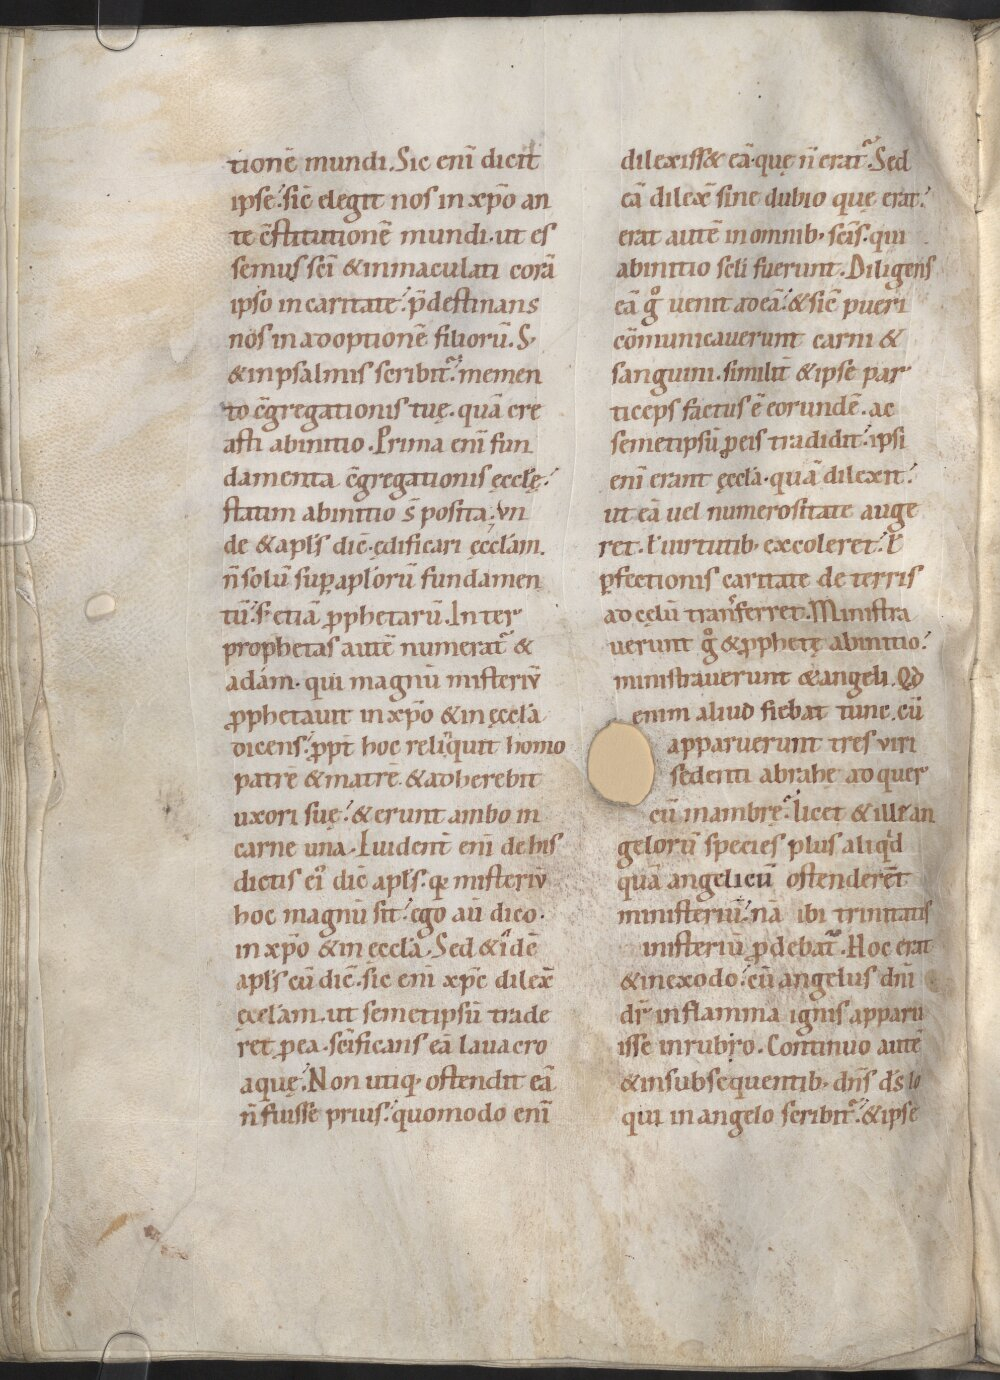 tionē mundi. Sic enī dicit
ipse. sic̄ elegit nos in xp̄o an
te c̄stitutionē mundi. ut es
semus sc̄i & inmaculati corā
ipso in caritate. p̄destinans
nos in adoptionē filiorū. S;
& in psalmis scribit̄. memen
to c̄gregationis tuę. quā cre
asti ab initio. Prima enī fun
damenta c̄gregationis ęcclę.
statim ab initio s̄ posita. Vn
de & apl̄s dic̄. ędificari ęccl̄am.
n̄ solū sup apl̄orū fundamen
tū. s; etiā pphetarū. Inter
prophetas autē numerat̄ &
adám. qui magnū misteriū
pphetavit in xp̄o & in ęccl̄a
dicens. ppt̄ hoc reliquit homo
patrē & matrē & adherebit
uxori suę. & erunt ambo in
carne una. Evident̄ enī de his
dictis ei dic̄ apl̄s. qr misteriū
hoc magnū sit. ego aū dico.
in xp̄o & in ęccl̄a. Sed & idē
apl̄s cū dic̄. sic enī xp̄c dilex̄
ęccl̄am. ut semetipsū trade
ret p ea. sc̄ificans eā lavacro
aquę. Non utiq; ostendit eā
n̄ fuisse prius. quomodo enī
dilexiss& eā. quę n̄ erat̄. Sed
eā dilex̄ sine dubio quę erat.
erat autē in omnib; sc̄is. qui
ab initio scl̄i fuerunt. Diligens
eā g° venit ad eā. & sic̄ pueri
cōmunicaverunt carni &
sanguini. similit̄ & ipse par
ticeps factus ē eorundē. ac
semetipsū p eis tradidit. ipsi
enī erant ęccl̄a. quā dilexit.
ut eā vel numerositate auge
ret. ł virtutib; excoleret. ł
pfectionis caritate de terris
ad cęlū transferret. Ministra
verunt g° & pphetę ab initio.
ministraverunt & angeli. Qd
enim aliud fiebat tunc. cū
apparuerunt tres viri
sedenti abrahę ad quer
cū mambrę. licet & illic an
gelorū species plus aliqd
quā angelicū ostenderēt
ministeriū. nā ibi trinitatis
misteriū pdebat̄. Hoc erat
& in exodo. cū angelus dn̄i
dr̄ in flamma ignis apparu
isse in rubro. Continuo autē
& in subsequentib; dn̄s d̄s lo
qui in angelo scribit̄. & ipse